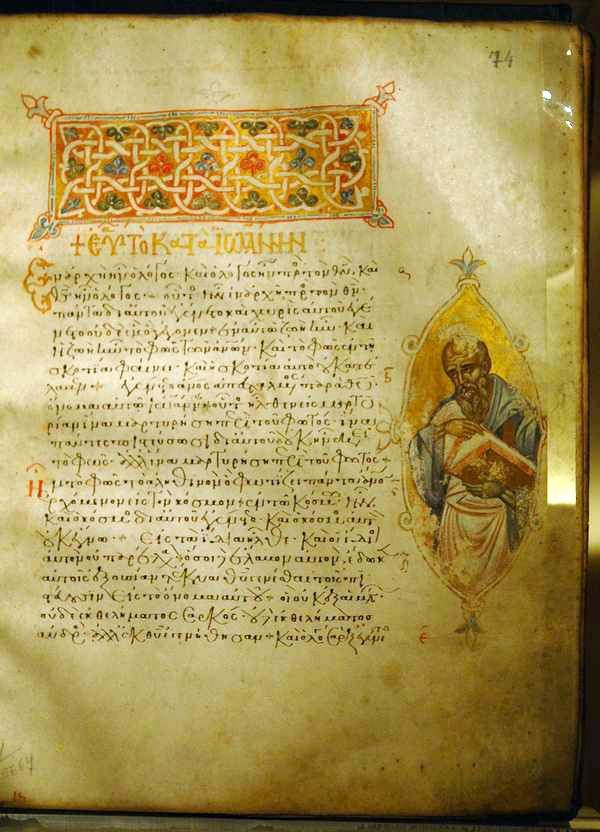 74
+ ΕΥ ΤΟ ΚΑΤΑ ΙΩΑΝΝΗΝ
Ἐν ἀρχῆ ἦν ὁ λόγος· καὶ ὁ λόγος ἦν πρὸς τὸν θν, καὶ
θς ἦν ὁ λόγος + οὗτος ἦν ἐν ἀρχῆ πρὸς τὸν θν·
πάντα δι αὐτοῦ ἐγένετο καὶ χωρὶς αὐτοῦ ἐγέ
νετο οὐδὲ ἓν ὃ γέγονεν· ἐν αὐτῶ ζωὴ ἦν· καὶ
ἡ ζωὴ ἦν τὸ φῶς τῶν ανων· καὶ τὸ φῶς ἐν τῆ
σκοτία φαίνει· καὶ ἡ σκοτία αὐτὸ οὐ κατέ
λαβεν + ἐγένετο ανος ἀπεσταλμένος παρὰ θυ·
ὄνομα αὐτῶ ἰωάννης· οὗτος ἦλθεν εἰς μαρτυ
ρίαν ἵνα μαρτυρήση περὶ τοῦ φωτός· ἵνα
πάντες πιστεύσωσι δι αὐτοῦ· οὐκ ἦν ἐκεῖνος
τὸ φῶς· ἀλλ ἵνα μαρτυρήση περὶ τοῦ φωτός +
Ἦν τὸ φῶς τὸ ἀληθινὸν ὃ φωτίζει πάντα ανον
ἐρχόμενον εἰς τὸν κόσμον + ἐν τῶ κόσμω ἦν
καὶ ὁ κόσμος δι αὐτοῦ ἐγένετο· καὶ ὁ κόσμος αὐτὸν
οὐκ ἔγνω + εἰς τὰ ἴδια ἦλθε· καὶ οἱ ἴδιοι
αὐτὸν οὐ παρέλαβον· ὅσοι δὲ ἔλαβον αὐτόν, ἔδωκεν
αὐτοῖς ἐξουσίαν τέκνα θυ γενέσθαι τοῖς πι
στεύουσιν εἰς τὸ ὄνομα αὐτοῦ + οἳ οὐκ ἐξ αἱμάτων
οὐδὲ ἐκ θελήματος σαρκός· οὐδὲ ἐκ θελήματος
ἀνδρός· ἀλλ ἐκ θυ ἐγεννήθησαν + καὶ ὁ λόγος σὰρξ ἐγένετο